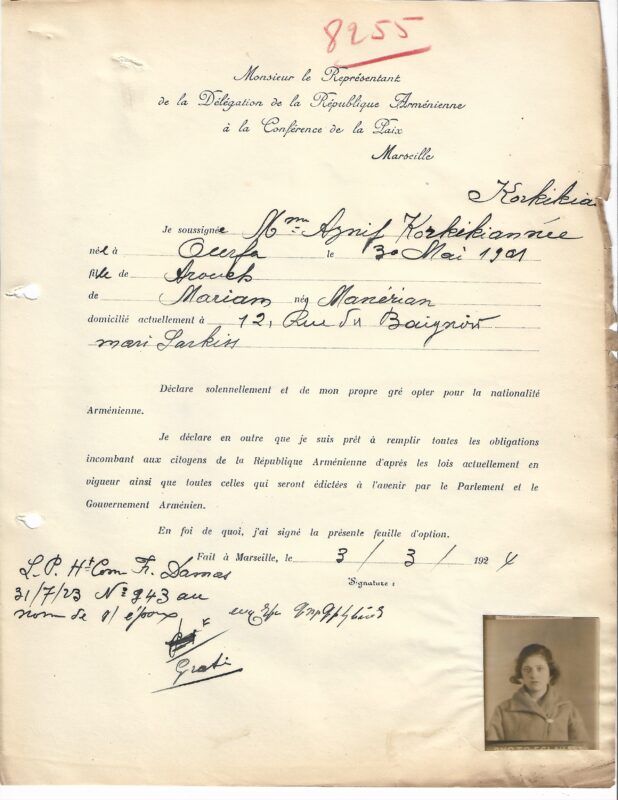 8255
Monsieur le Représentant
de la Délégation de la République Arménienne
à la Conférence de la Paix
Marseille
Korkikia
Je soussignée Mme Aznif Korkikian née
née à Ourfa le 30 Mai 1901
fille de Arouch
de Mariam née Manérian
domicilié actuellement à 12, Rue du Baignoir
mari Sarkiss
Déclare solennellement et de mon propre gré opter pour la nationalité
Arménienne.
Je déclare en outre que je suis prêt à remplir toutes les obligations
incombant aux citoyens de la République Arménienne d'après les lois actuellement en
vigueur ainsi que toutes celles qui seront édictées à l'avenir par le Parlement et le
Gouvernement Arménien.
En foi de quoi, j'ai signé la présente feuille d'option.
Fait à Marseille, le 3 / 3 / 1924
Signature :
L. P. Ht Com Fr. Damas
31/7/23 No 943 au
nom de s/ époux
Gratis